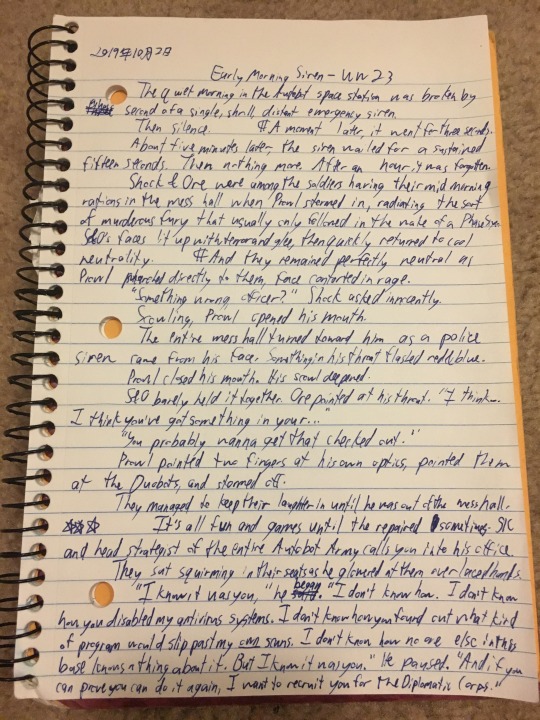 2019年10月2日
Early Morning Siren - WW23
The quiet morning in the Autobot space station was broken by
second of a single, shrill, distant emergency siren.
Then silence. ¶A moment later, it went for three seconds.
About five minutes later, the siren wailed for a sustained
fifteen seconds. Then nothing more. After an hour, it was forgotten.
Shock & Ore were among the soldiers having their mid morning
rations in the mess hall when Prowl stormed in, radiating the sort
of murderous fury that usually only followed in the wake of a Phase
S&O's faces lit up with terror and glee, then quickly returned to cool
neutrality. ¶And they remained perfectly neutral as
Prowl marched directly to them, face contorted in rage.
"Something wrong officer?" Shock asked innocently.
Scowling, Prowl opened his mouth.
The entire mess hall turned toward him as a police
siren came from his face. Something in his throat flashed red & blue.
Prowl closed his mouth. His scowl deepened.
S&O barely held it together. Ore pointed at his throat. "I think...
I think you've got something in your..."
"You probably wanna get that checked out."
Prowl pointed two fingers at his own optics, pointed them
at the Duobots, and stormed off.
They managed to keep their laughter in until he was out of the mess hall.
☆☆☆ It's all fun and games until the repaired sometimes SIC
and head strategist of the entire Autobot Army calls you into his office
They sat squirming in their seats as he glowered at them over laced hands.
"I know it was you," he began. "I don't know how. I don't know
how you disabled my antivirus systems. I don't know how you found out what kind
of program would slip past my own scans. I don't know how no one else in this
base knows a thing about it. But I know it was you." He paused. "And if you
can prove you can do it again, I want to recruit you for the Diplomatic Corps."